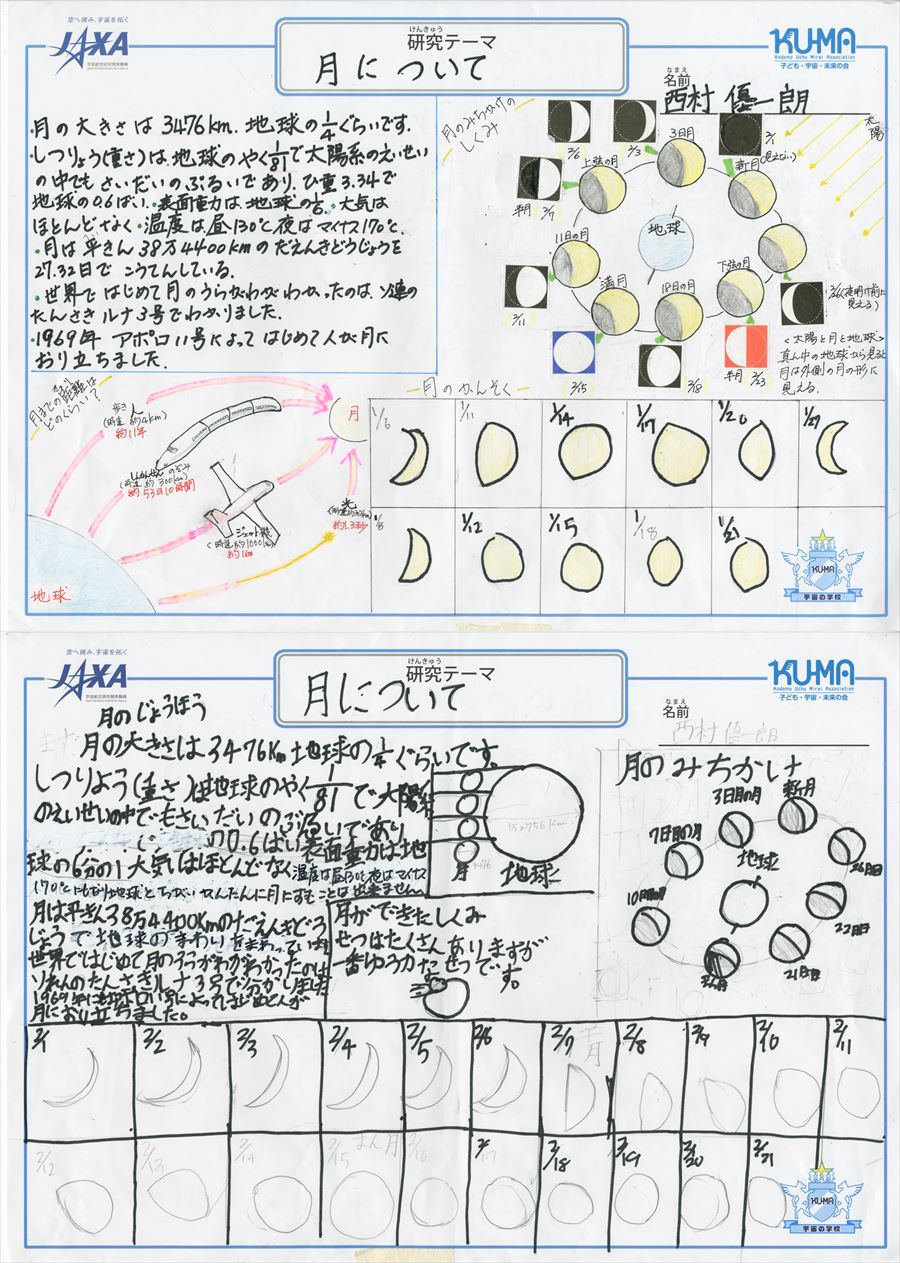 空へ挑み、宇宙を拓く
JAXA
宇宙航空研究開発機構
けんきゅう
研究テーマ
月について
KU-MA
Kodomo Uchu Mirai Association
子ども・宇宙・未来の会
なまえ
名前
西村 優一朗
・月の大きさは3476km.地球の1/4ぐらいです.
・しつりょう(重さ)は、地球のやく1/81で太陽系のえいせい
の中でも さいだいのぶるいであり、ひ重3.34で
地球の0.6ばい.・表面重力は、地球の1/6.・大気は
ほとんどなく・温度は昼130℃夜はマイナス170℃.
・月は平きん38万4400kmのだえんきどうじょうを
27.32日で こうてんしている.
・世界で はじめて月のうらがわがわかったのは、ソ連の
たんさき ルナ3号でわかりました.
・1969年 アポロ11号によって はじめて人が月に
おり立ちました.
月のみちかけの
しくみ
太陽
2/6
2/3
3日月
2/1
新月
(見えない)
上弦の月
半月
2/7
地球
11日の月
2/11
満月
2/15
18日の月
2/18
下弦の月
半月
2/23
2/26(夜明け前に
見える)
<太陽と月と地球>
真ん中の地球から見ると
月は外側の月の形に
見える.
月までの距離は
どのくらい?
歩き 人
(時速 約4km)
約11年
しんかんせん のぞみ
(時速 約300km)
約53日10時間
ジェット機
(時速約1000km)
約16日
光
約1.3秒
月
地球
月のかんそく
1/6
1/11
1/14
1/17
1/20
1/27
1/8
1/12
1/15
1/18
1/21
KUMA
宇宙の学校
空へ挑み、宇宙を拓く
JAXA
宇宙航空研究開発機構
けんきゅう
研究テーマ
月について
KU-MA
Kodomo Uchu Mirai Association
子ども・宇宙・未来の会
なまえ
名前
西村 優一朗
月のじょうほう
まず
月の大きさは3476Km 地球の1/4ぐらいです。
しつりょう(重さ)は地球のやく1/81で太陽系
のえいせいの中でもさいだいのぶるいであり
の0.6ばい表面重力は地
球の6分の1大気はほとんどなく温度は昼130℃夜はマイナス
170℃にもなり地球とちがいかんたんに月にすむことは出来ません
12756km
3476
月
地球
月は平きん38万4400Kmのだえんきどう
じょうで地球のまわりをまわっています
世界ではじめて月のうらがわがわかったのは
ソれんのたんさきルナ3号で分かりました
1969年にアポロ11号によってはじめて人が
月におり立ちました。
月ができたしくみ
せつはたくさんありますが
一番ゆう力なせつです。
月のみちかけ
3日目の月
新月
7日目の月
地球
26日目
10日目の月
22日目
21日目
2/1
2/2
2/3
2/4
2/5
2/6
2/7
半月
2/8
2/9
2/10
2/11
2/12
2/13
2/14
2/15
まん月
2/16
2/17
2/18
2/19
2/20
2/21
KUMA
宇宙の学校